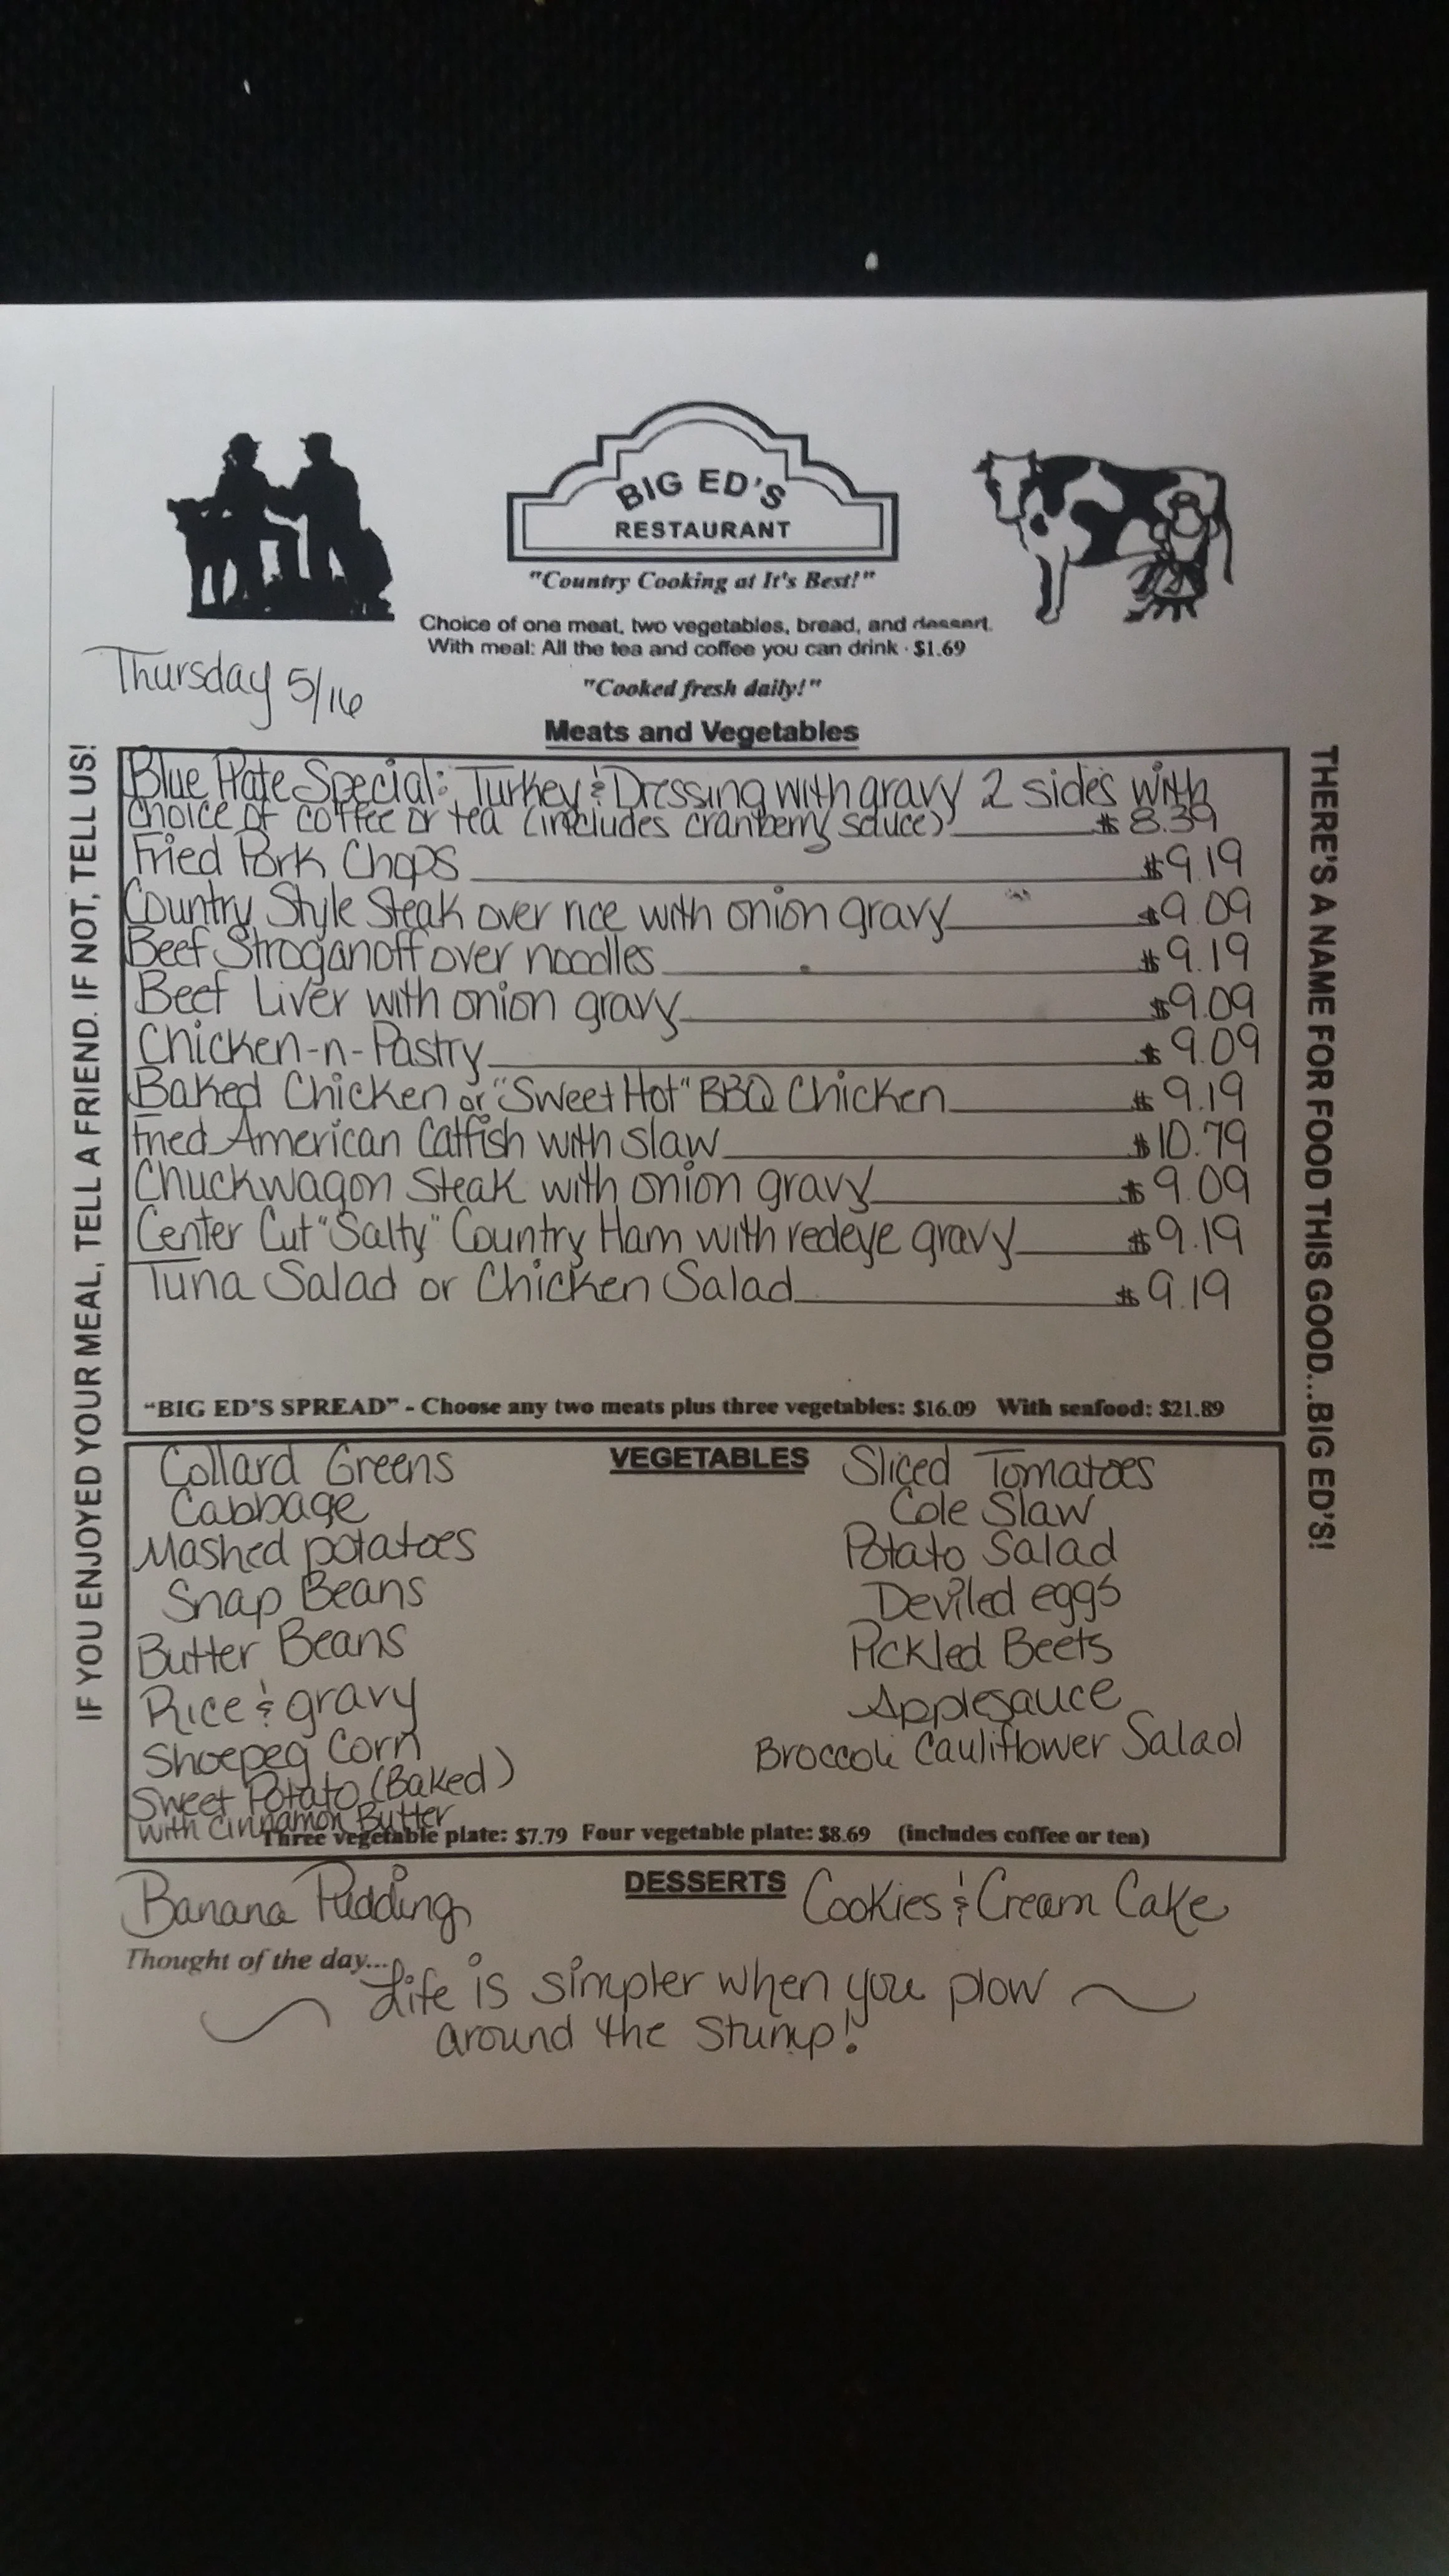 BIG ED'S
RESTAURANT
"Country Cooking at It's Best!"
Choice of one meat, two vegetables, bread, and dessert.
With meal: All the tea and coffee you can drink · $1.69
Thursday 5/16
"Cooked fresh daily!"
Meats and Vegetables
IF YOU ENJOYED YOUR MEAL, TELL A FRIEND. IF NOT, TELL US!
THERE'S A NAME FOR FOOD THIS GOOD...BIG ED'S!
Blue Plate Special: Turkey & Dressing with gravy 2 sides with
choice of coffee or tea (includes cranberry sauce) $8.39
Fried Pork Chops $9.19
Country Style Steak over rice with onion gravy $9.09
Beef Stroganoff over noodles $9.19
Beef Liver with onion gravy $9.09
Chicken-n-Pastry $9.09
Baked Chicken or "Sweet Hot" BBQ Chicken $9.19
Fried American Catfish with slaw $10.79
Chuckwagon Steak with onion gravy $9.09
Center Cut "Salty" Country Ham with redeye gravy $9.19
Tuna Salad or Chicken Salad $9.19
"BIG ED'S SPREAD" - Choose any two meats plus three vegetables: $16.09 With seafood: $21.89
VEGETABLES
Collard Greens
Cabbage
Mashed potatoes
Snap Beans
Butter Beans
Rice & gravy
Shoepeg Corn
Sweet Potato (Baked)
with Cinnamon Butter
Sliced Tomatoes
Cole Slaw
Potato Salad
Deviled eggs
Pickled Beets
Applesauce
Broccoli Cauliflower Salad
Three vegetable plate: $7.79 Four vegetable plate: $8.69 (includes coffee or tea)
DESSERTS
Banana Pudding
Cookies & Cream Cake
Thought of the day...
Life is simpler when you plow
around the stump!